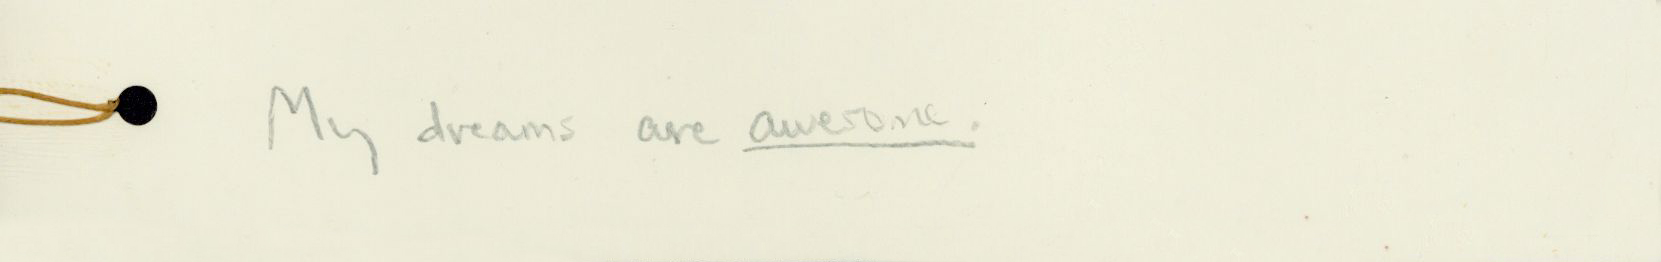 My dreams are awesome.